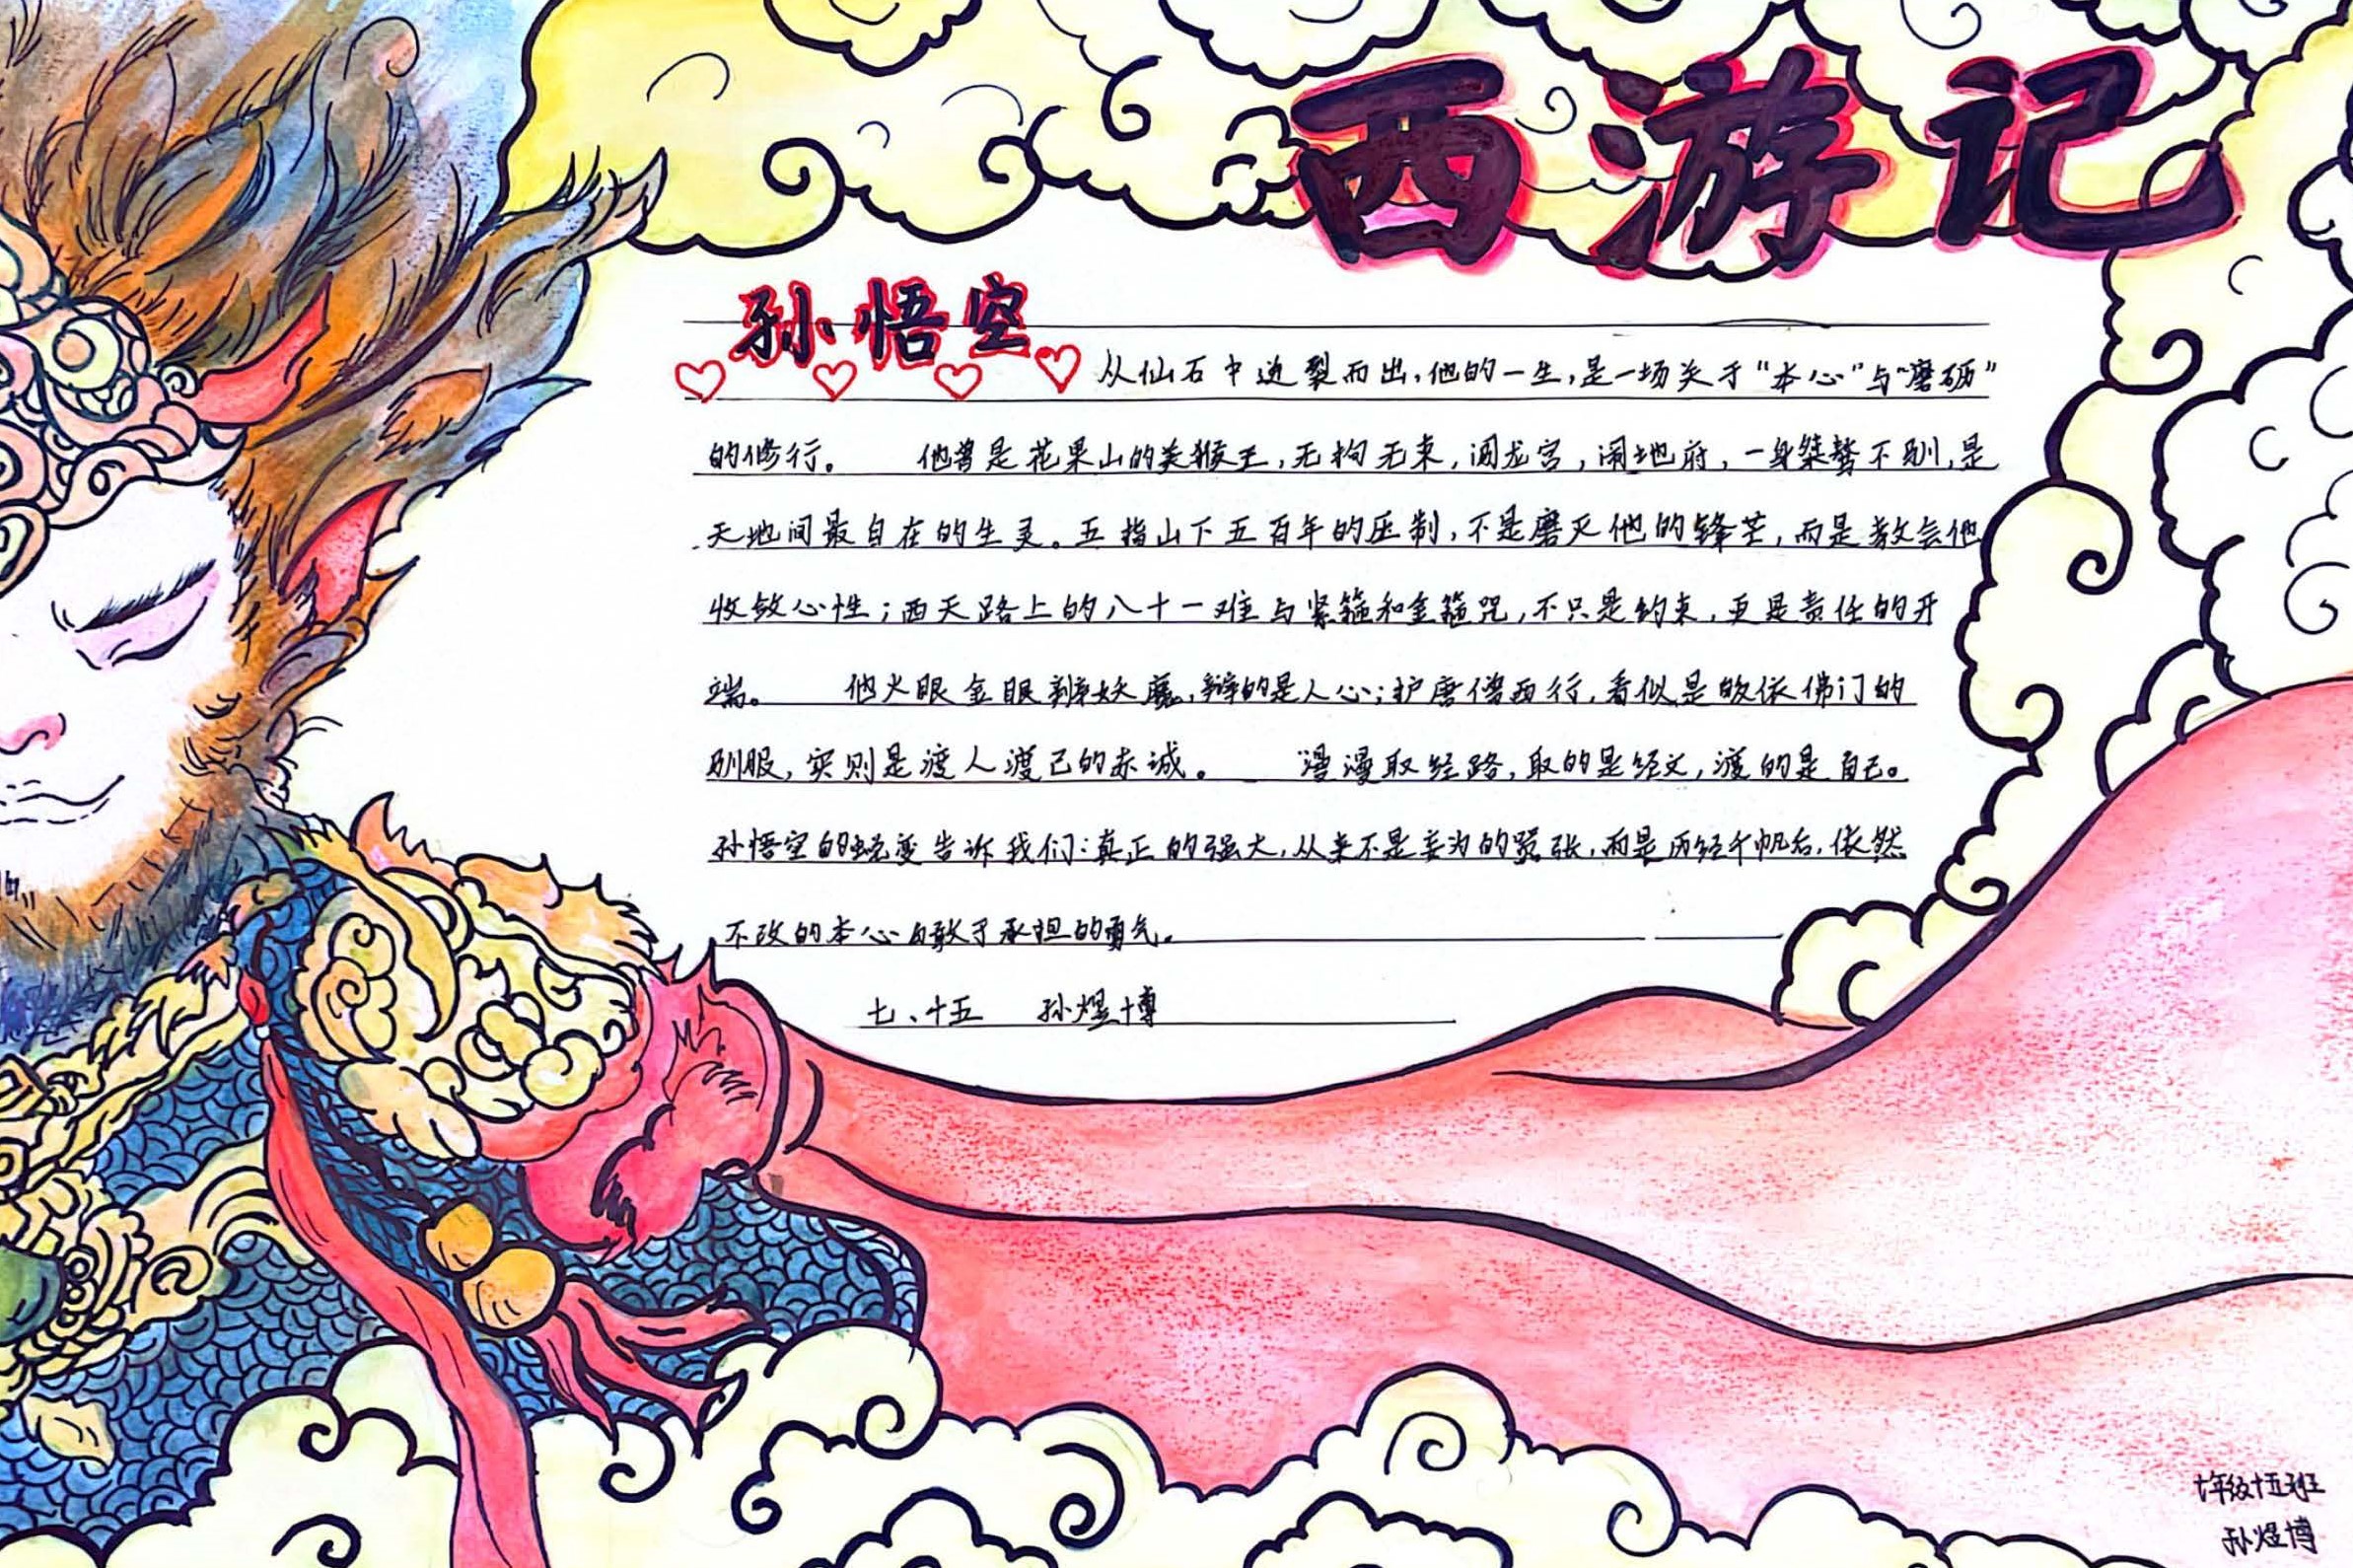 西游记
孙悟空
从仙石中迸裂而出，他的一生，是一场关于“本心”与“磨砺”
的修行。 他曾是花果山的美猴王，无拘无束，闹龙宫，闹地府，一身桀骜不驯，是
天地间最自在的生灵。五指山下五百年的压制，不是磨灭他的锋芒，而是教会他
收敛心性；西天路上的八十一难与紧箍和金箍咒，不只是约束，更是责任的开
端。 他火眼金眼辨妖魔，辩的是人心；护唐僧西行，看似是皈依佛门的
驯服，实则是渡人渡己的赤诚。 漫漫取经路，取的是经文，渡的是自己。
孙悟空的蜕变告诉我们：真正的强大，从来不是妄为的嚣张，而是历经千帆后，依然
不改的本心与敢于承担的勇气。
七、十五 孙煜博
七年级十五班
孙煜博